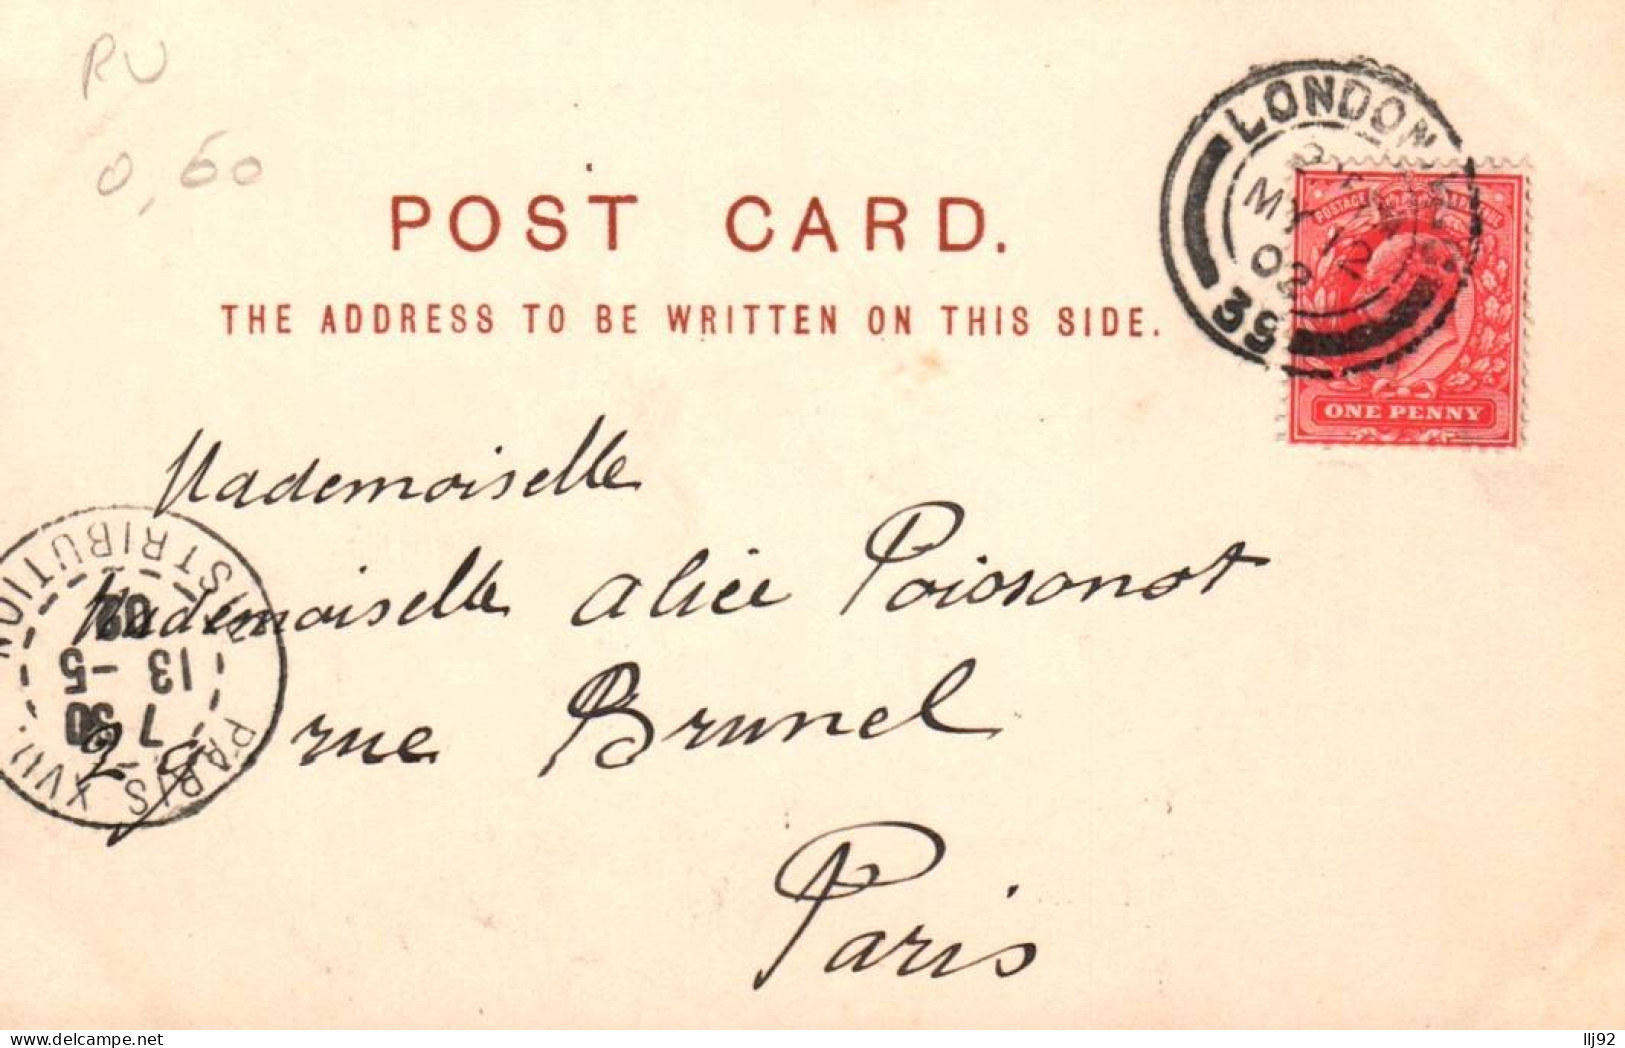 RU
0,60
POST CARD.
THE ADDRESS TO BE WRITTEN ON THIS SIDE.
LONDON
MY 12
02
39
POSTAGE
ONE PENNY
Mademoiselle
Mademoiselle Alice Poissonot
29 rue Brunel
Paris
PARIS XVII. DISTRIBUTION
7 30
13 -5
02
llj92